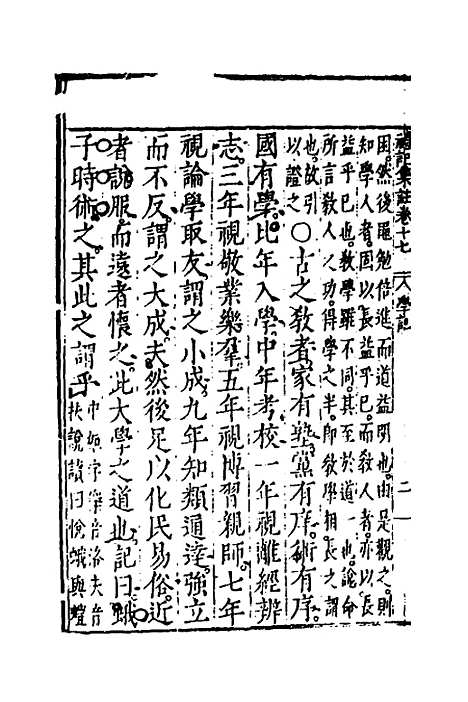 禮記集註卷十七 學記 二
困。然後黽勉倍進而道益明也。由是觀之。則
知學人者。固以長益乎己。而教人者。亦以長
益乎己也。教學雖不同。其至於道一也。說命
所言教人之功。得學之半。即教學相長之謂
也。故引
以證之○古之教者家有塾黨有庠術有序
國有學。比年入學。中年考校一年視離經辨
志。三年視敬業樂羣五年視博習親師。七年
視論學取友謂之小成九年知類通達強立
而不反。謂之大成。夫然後足以化民易俗。近
者說服。而遠者懷之。此大學之道也。記曰蛾
子時術之其此之謂乎
中如字樂音洛夫音
扶說讀曰悅蛾與螘